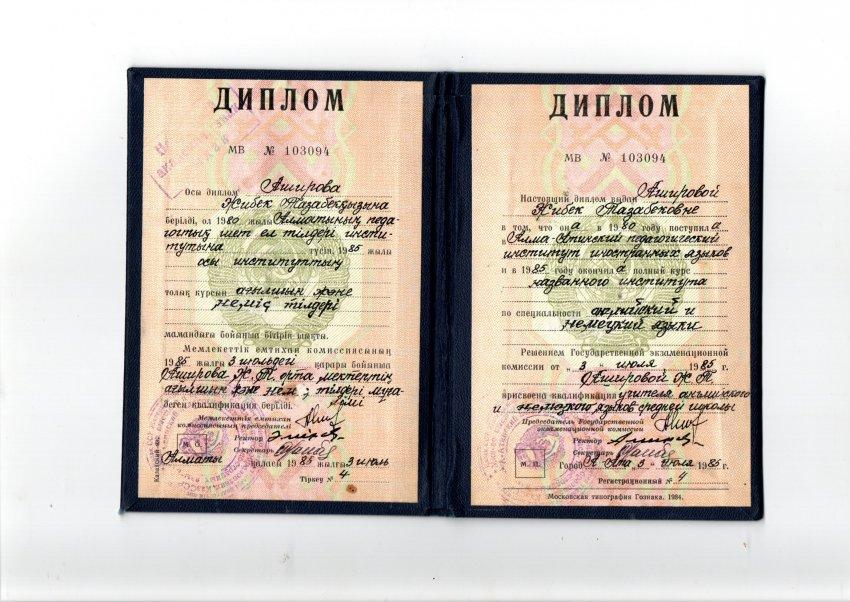 ДИПЛОМ
МВ № 103094
Осы диплом Аширова
Жибек Тазабекқызына
берілді, ол 1980 жылы Алматының педа-
гогтық шет ел тілдері инсти-
тутына түсіп, 1985 жылы
осы институттың
толық курсын ағылшын және
неміс тілдері
мамандығы бойынша бітіріп шықты.
Мемлекеттік емтихан комиссиясының
1985 жылғы 3 июльдегі қарары бойынша
Аширова Ж. Т. орта мектептің
ағылшын және нем тілдері мұға-
лімі
деген квалификация берілді.
Мемлекеттік емтихан
комиссиясының председателі
Ректор
Секретарь
М. О.
Алматы қаласы 1985 жылғы 3 июль
Тіркеу № 4
ДИПЛОМ
МВ № 103094
Настоящий диплом выдан Ашировой
Жибек Тазабековне
в том, что она в 1980 году поступила
в Алма-Атинский педагогический
институт иностранных языков
и в 1985 году окончила полный курс
названного института
по специальности английский и
немецкий языки
Решением Государственной экзаменационной
комиссии от „3 июля 1985 г.
Ашировой Ж. Т.
присвоена квалификация учителя английского
и немецкого языков средней школы
Председатель Государственной
экзаменационной комиссии
Ректор
Секретарь
М. П.
Город А-Ата „3“ июля 1985 г.
Регистрационный № 4
Московская типография Гознака. 1984.